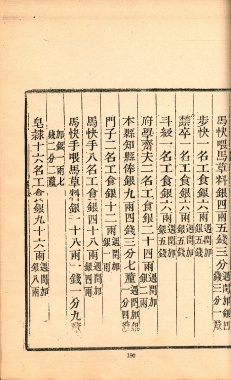 馬快喂馬草料銀四兩五錢三分遇閏加銀三錢三分一釐
步快一名工食銀六兩遇閏加銀五錢
禁卒一名工食銀六兩遇閏加銀五錢
斗級一名工食銀六兩遇閏加銀五錢
府學齋夫二名工食銀二十四兩遇閏加銀二兩
本縣知縣俸銀九兩四錢三分七釐
門子二名工食銀十二兩遇閏加銀一兩
馬快手八名工食銀四十八兩遇閏加銀四兩
馬快手喂馬草料銀一十八兩一錢一分九釐
加銀一兩七錢二分二釐
皂隸十六名工食銀九十六兩遇閏加銀八兩
190